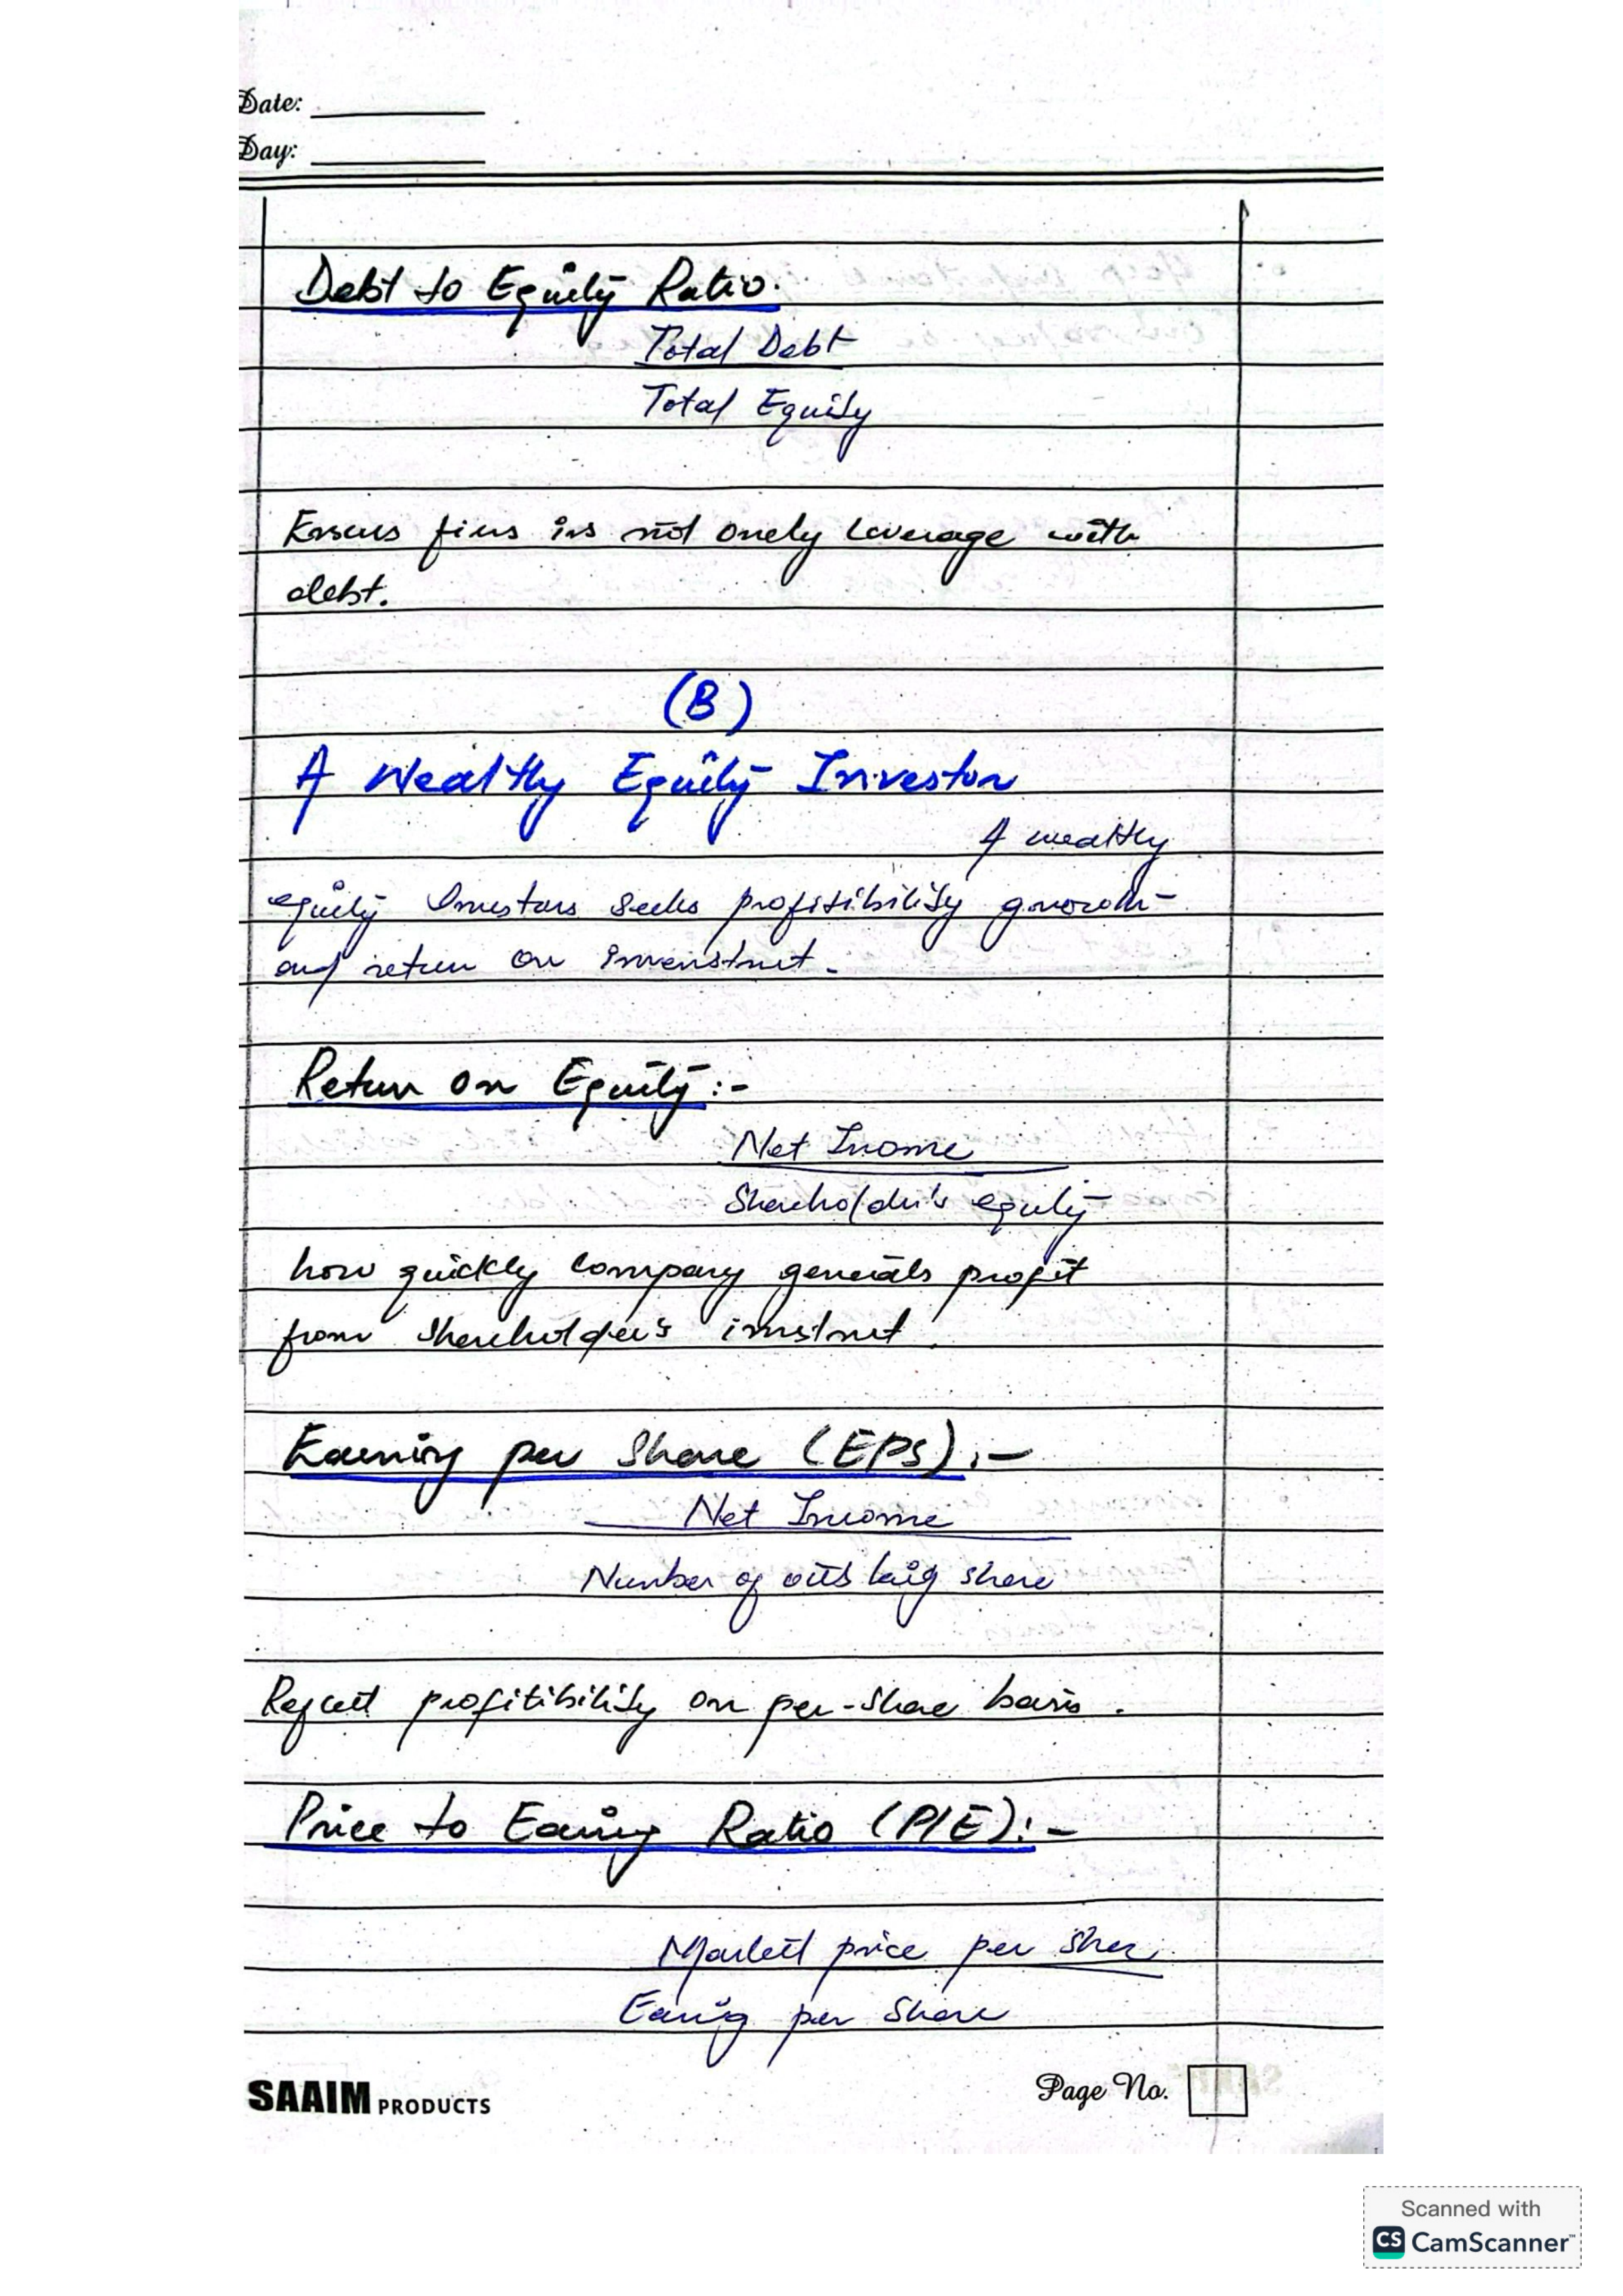 Date:
Day:
Debt to Equity Ratio.
Total Debt
Total Equity
firms is not overly Leverage with
debt.
(B)
A Wealthy Equity Investor
A wealthy
equity Investors seeks profitibility growth
and return on
Return on Equity:-
Net Inome
Shareholder's equity
how quickly company generals profit
from shareholder's
Earning per Share (EPS):-
Net Income
Number of share
profitibility on per-share basis.
Price to Earing Ratio (P/E):-
Market price per Sher
Earing per Share
SAAIM PRODUCTS
Page No.
Scanned with
CS CamScanner